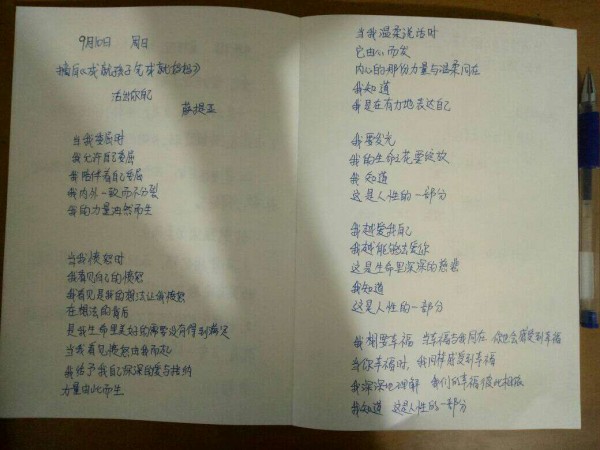 9月10日 周日
摘自《成就孩子 先成就妈妈》
活出你自己
萨提亚
当我委屈时
我允许自己委屈
我陪伴着自己委屈
我内外一致而不分裂
我的力量油然而生
当我愤怒时
我看见自己的愤怒
我看见是我的想法让我愤怒
在想法的背后
是我生命里美好的需要没有得到满足
当我看见愤怒由我而起
我给予我自己深深的爱与接纳
力量由此而生
当我温柔说话时
它由心而发
内心的那份力量与温柔同在
我知道
我是在有力地表达自己
我要发光
我的生命之花要绽放
我知道
这是人性的一部分
我越爱我自己
我越能够去爱你
这是生命里深深的慈悲
我知道
这是人性的一部分
我想要幸福 当幸福与我同在 你也会感受到幸福
当你幸福时,我同样感受到幸福
我深深地理解 我们的幸福彼此相依
我知道 这是人性的一部分